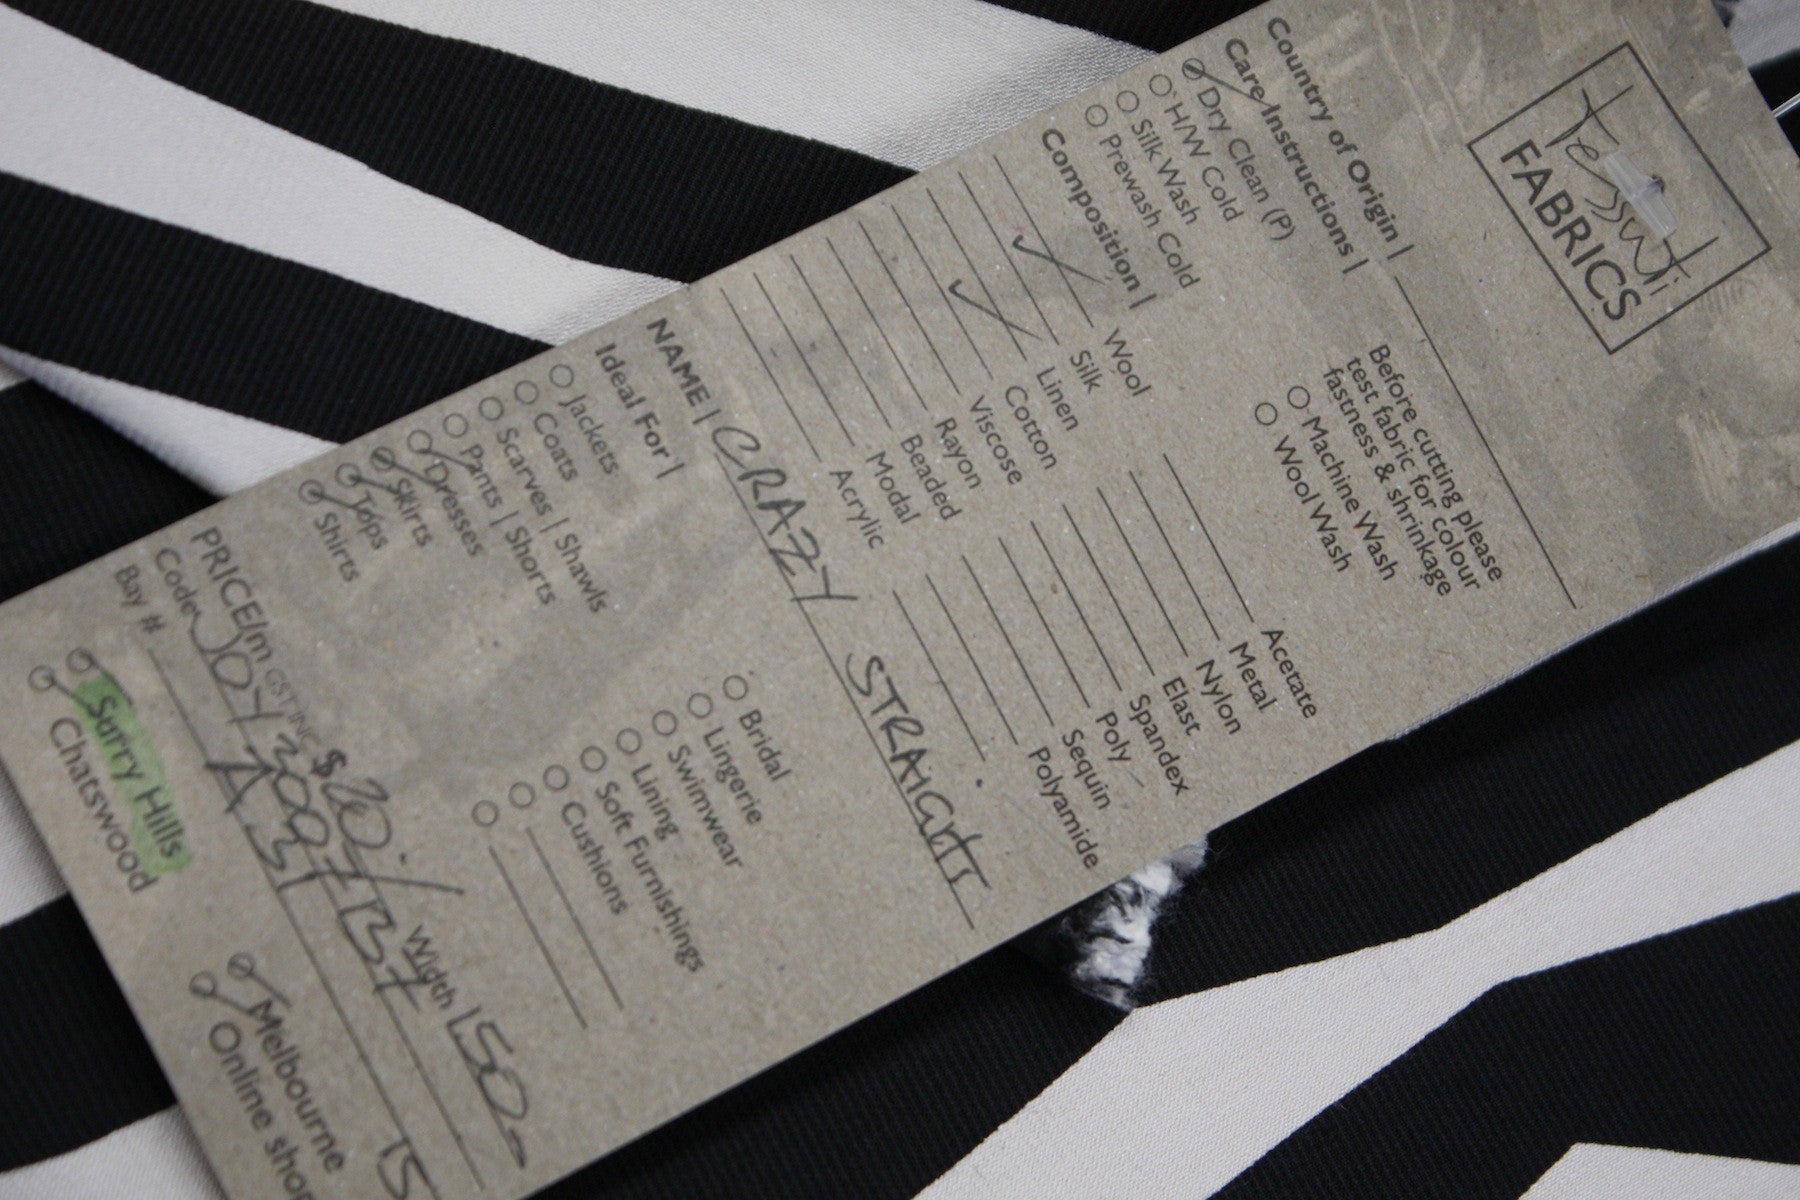 Tessuti
FABRICS
Country of Origin |
Care Instructions |
Dry Clean (P)
H/W Cold
Silk Wash
Prewash Cold
Before cutting please
test fabric for colour
fastness & shrinkage
Machine Wash
Wool Wash
Composition |
Wool
Silk
Linen
Cotton
Viscose
Rayon
Beaded
Modal
Acrylic
Acetate
Metal
Nylon
Elast
Spandex
Poly
Sequin
Polyamide
NAME | CRAZY STRAIGHTS
Ideal For |
Jackets
Coats
Scarves | Shawls
Pants | Shorts
Dresses
Skirts
Tops
Shirts
Bridal
Lingerie
Swimwear
Lining
Soft Furnishings
Cushions
PRICE/m GST INC $20. Width 150
Code
Bay #
Surry Hills
Chatswood
Melbourne
Online